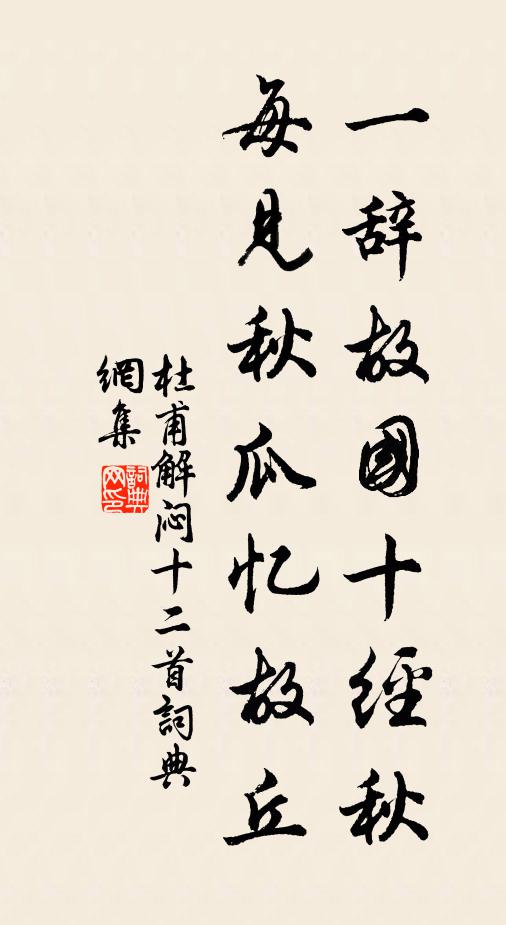 一辞故國十經秋
每見秋瓜忆故丘
杜甫解闷十二首詞典
網集
詞典
网印